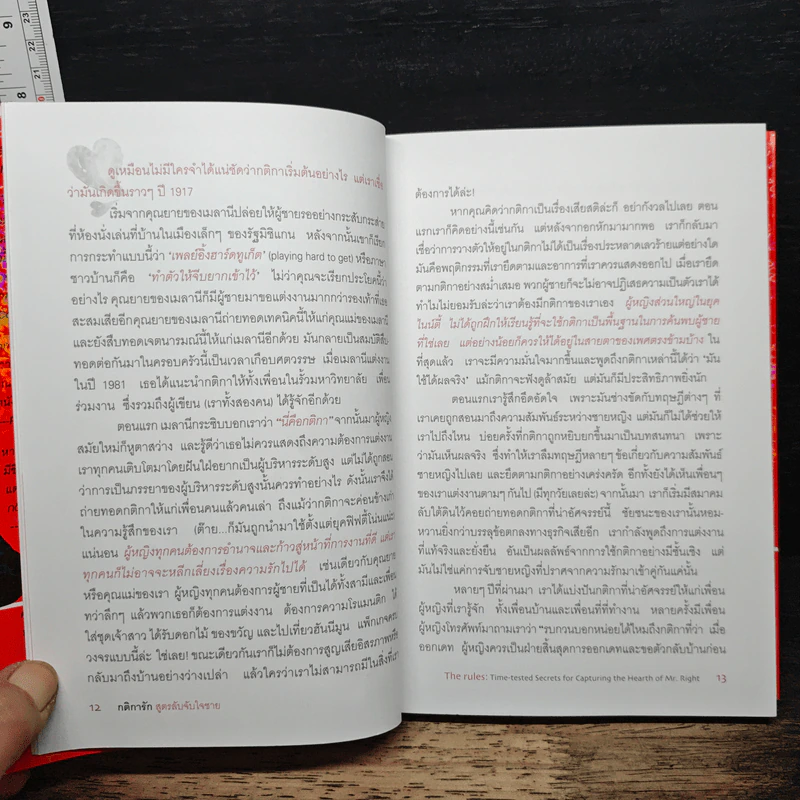 9
8
23
22
21
ดูเหมือนไม่มีใครจำได้แน่ชัดว่ากติกาเริ่มต้นอย่างไร แต่เราเชื่อ
ว่ามันเกิดขึ้นราวๆ ปี 1917
เริ่มจากคุณยายของเมลานีปล่อยให้ผู้ชายรออย่างกระสับกระส่าย
ที่ห้องนั่งเล่นที่บ้านในเมืองเล็กๆ ของรัฐมิชิแกน หลังจากนั้นเขาก็เรียก
การกระทำแบบนี้ว่า ‘เพลย์อิ้งฮาร์ดทูเก็ต’ (playing hard to get) หรือภาษา
ชาวบ้านก็คือ ‘ทำตัวให้จีบยากเข้าไว้’ ไม่ว่าคุณจะเรียกประโยคนี้ว่า
อย่างไร คุณยายของเมลานีก็มีผู้ชายมาขอแต่งงานมากกว่ารองเท้าที่เธอ
สะสมเสียอีกคุณยายของเมลานีถ่ายทอดเทคนิคนี้ให้แก่คุณแม่ของเมลานี
และยังสืบทอดเจตนารมณ์นี้ให้แก่เมลานีอีกด้วย มันกลายเป็นสมบัติสืบ
ทอดต่อกันมาในครอบครัวนี้เป็นเวลาเกือบศตวรรษ เมื่อเมลานีแต่งงาน
ในปี 1981 เธอได้แนะนำกติกาให้ทั้งเพื่อนในรั้วมหาวิทยาลัย เพื่อน
ร่วมงาน ซึ่งรวมถึงผู้เขียน (เราทั้งสองคน) ได้รู้จักอีกด้วย
ตอนแรก เมลานีกระซิบบอกเราว่า “นี่คือกติกา” จากนั้นมาผู้หญิง
สมัยใหม่ก็หูตาสว่าง และรู้ดีว่าเธอไม่ควรแสดงถึงความต้องการแต่งงาน
เราทุกคนเติบโตมาโดยฝันใฝ่อยากเป็นผู้บริหารระดับสูง แต่ไม่ได้ถูกสอน
ว่าการเป็นภรรยาของผู้บริหารระดับสูงนั้นควรทำอย่างไร ดังนั้นเราจึงได้
ถ่ายทอดกติกาให้แก่เพื่อนคนแล้วคนเล่า ถึงแม้ว่ากติกาจะค่อนข้างเก่า
ในความรู้สึกของเรา (ต๊าย...ก็มันถูกนำมาใช้ตั้งแต่ยุคฟิฟตี้โน่นแน่ะ)
แน่นอน ผู้หญิงทุกคนต้องการอำนาจและก้าวสู่หน้าที่การงานที่ดี แต่เรา
ทุกคนก็ไม่อาจจะหลีกเลี่ยงเรื่องความรักไปได้ เช่นเดียวกับคุณยาย
หรือคุณแม่ของเรา ผู้หญิงทุกคนต้องการผู้ชายที่เป็นได้ทั้งสามีและเพื่อน
ทว่าลึกๆ แล้วพวกเธอก็ต้องการแต่งงาน ต้องการความโรแมนติก ได้
ใส่ชุดเจ้าสาว ได้รับดอกไม้ ของขวัญ และไปเที่ยวฮันนีมูน แพ็กเกจครบ
วงจรแบบนี้ล่ะ ใช่เลย! ขณะเดียวกันเราก็ไม่ต้องการสูญเสียอิสรภาพหรือ
กลับมาถึงบ้านอย่างว่างเปล่า แล้วใครว่าเราไม่สามารถมีในสิ่งที่เรา
12 กติการัก สูตรลับจับใจชาย
ต้องการได้ล่ะ!
หากคุณคิดว่ากติกาเป็นเรื่องเสียสติล่ะก็ อย่ากังวลไปเลย ตอน
แรกเราก็คิดอย่างนี้เช่นกัน แต่หลังจากอกหักมามากพอ เราก็กลับมา
เชื่อว่าการวางตัวให้อยู่ในกติกาไม่ได้เป็นเรื่องประหลาดเลวร้ายแต่อย่างใด
มันคือพฤติกรรมที่เรายึดตามและอาการที่เราควรแสดงออกไป เมื่อเรายึด
ตามกติกาอย่างสม่ำเสมอ พวกผู้ชายก็จะไม่อาจปฏิเสธความเป็นตัวเราได้
ทำไมไม่ยอมรับล่ะว่าเราต้องมีกติกาของเราเอง ผู้หญิงส่วนใหญ่ในยุค
ไนน์ตี้ ไม่ได้ถูกฝึกให้เรียนรู้ที่จะใช้กติกาเป็นพื้นฐานในการค้นพบผู้ชาย
ที่ใช่เลย แต่อย่างน้อยก็ควรให้ได้อยู่ในสายตาของเพศตรงข้ามบ้าง ใน
ที่สุดแล้ว เราจะมีความมั่นใจมากขึ้นและพูดถึงกติกาเหล่านี้ได้ว่า ‘มัน
ใช้ได้ผลจริง’ แม้กติกาจะฟังดูล้าสมัย แต่มันก็มีประสิทธิภาพยิ่งนัก
ตอนแรกเรารู้สึกอึดอัดใจ เพราะมันช่างขัดกับทฤษฎีต่างๆ ที่
เราเคยถูกสอนมาถึงความสัมพันธ์ระหว่างชายหญิง แต่มันก็ไม่ได้ช่วยให้
เราไปถึงไหน บ่อยครั้งที่กติกาถูกหยิบยกขึ้นมาเป็นบทสนทนา เพราะ
ว่ามันเห็นผลจริง ซึ่งทำให้เราลืมทฤษฎีหลายๆ ข้อเกี่ยวกับความสัมพันธ์
ชายหญิงไปเลย และยึดตามกติกาอย่างเคร่งครัด อีกทั้งยังได้เห็นเพื่อนๆ
ของเราแต่งงานตามๆ กันไป (มีทุกวัยเลยล่ะ) จากนั้นมา เราก็เริ่มมีสมาคม
ลับใต้ดินไว้คอยถ่ายทอดกติกาที่น่าอัศจรรย์นี้ ชัยชนะของเรานั้นหอม-
หวานยิ่งกว่าบรรลุข้อตกลงทางธุรกิจเสียอีก เรากำลังพูดถึงการแต่งงาน
ที่แท้จริงและยั่งยืน อันเป็นผลลัพธ์จากการใช้กติกาอย่างมีชั้นเชิง แต่
มันไม่ใช่แค่การจับชายหญิงที่ปราศจากความรักมาเข้าคู่กันแค่นั้น
หลายๆ ปีที่ผ่านมา เราได้แบ่งปันกติกาที่น่าอัศจรรย์ให้แก่เพื่อน
ผู้หญิงที่เรารู้จัก ทั้งเพื่อนบ้านและเพื่อนที่ที่ทำงาน หลายครั้งมีเพื่อน
ผู้หญิงโทรศัพท์มาถามเราว่า “รบกวนบอกหน่อยได้ไหมถึงกติกาที่ว่า เมื่อ
ออกเดท ผู้หญิงควรเป็นฝ่ายสิ้นสุดการออกเดทและขอตัวกลับบ้านก่อน
The rules: Time-tested Secrets for Capturing the Hearth of Mr. Right 13